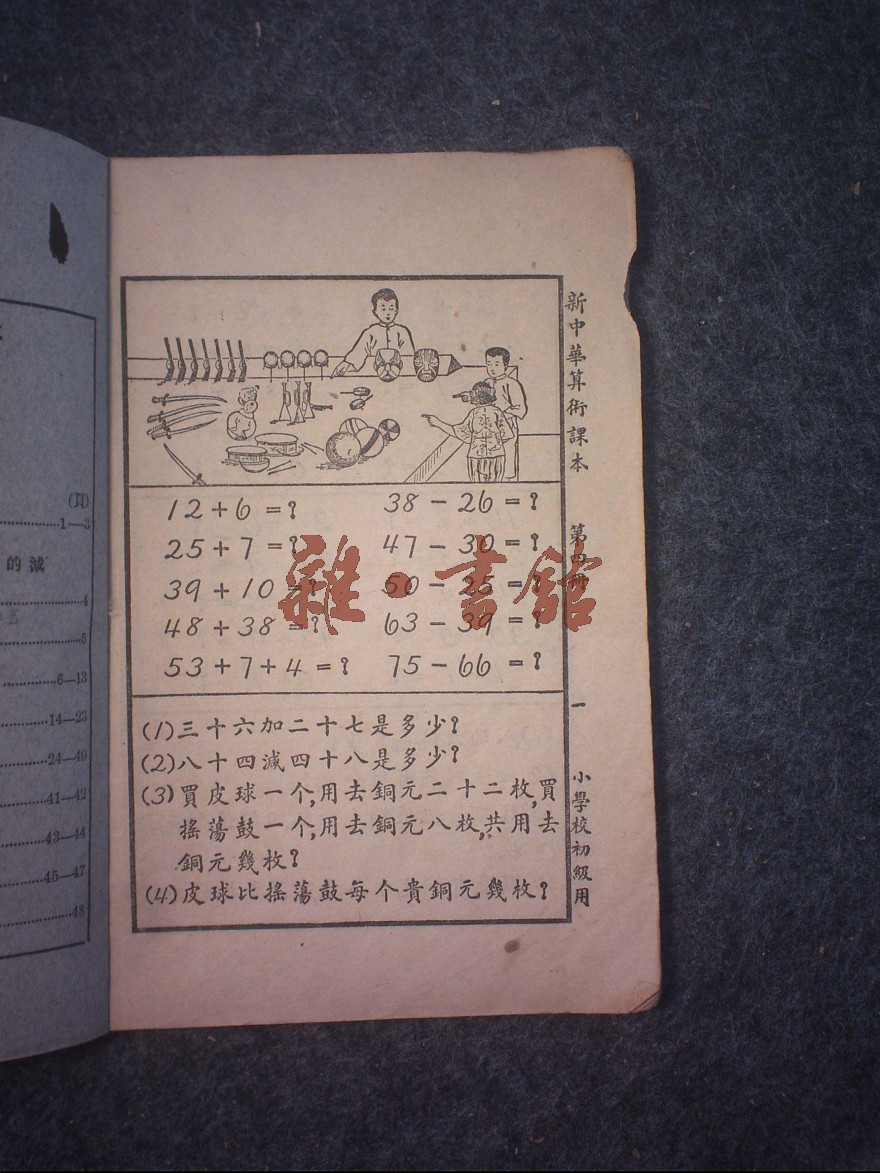 (頁)
1—3
的減
4
5
6—13
14—23
24—40
41—42
43—44
45—47
48
12+6=?
38-26=?
25+7=?
47-30=?
39+10=?
50-25=?
48+38=?
63-39=?
53+7+4=?
75-66=?
(1)三十六加二十七是多少?
(2)八十四減四十八是多少?
(3)買皮球一个,用去銅元二十二枚,買
搖蕩鼓一个,用去銅元八枚,共用去
銅元幾枚?
(4)皮球比搖蕩鼓每个貴銅元幾枚?
新中華算術課本 第四冊 一 小學校初級用
雜·書館